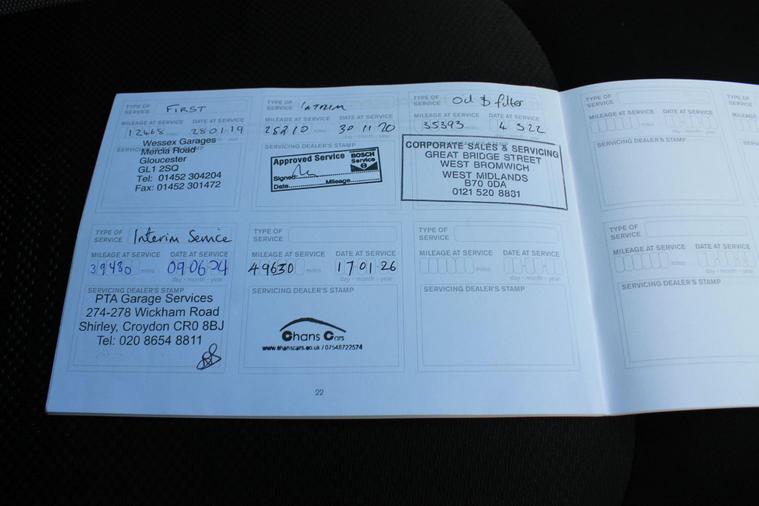 TYPE OF SERVICE FIRST
MILEAGE AT SERVICE DATE AT SERVICE
12468 miles 28 01 19
Wessex Garages
Mercia Road
Gloucester
GL1 2SQ
Tel: 01452 304204
Fax: 01452 301472
TYPE OF SERVICE INTRIM
MILEAGE AT SERVICE DATE AT SERVICE
25210 miles 30 11 20
SERVICING DEALER'S STAMP
Approved Service BOSCH Service
Signed
Date Mileage
TYPE OF SERVICE Oil & filter
MILEAGE AT SERVICE DATE AT SERVICE
35393 4 3 22
CORPORATE SALES & SERVICING
GREAT BRIDGE STREET
WEST BROMWICH
WEST MIDLANDS
B70 0DA
0121 520 8831
TYPE OF SERVICE
MILEAGE AT SERVICE DATE AT SERVICE
miles day - month - year
SERVICING DEALER'S STAMP
TYPE OF SERVICE Interim Service
MILEAGE AT SERVICE DATE AT SERVICE
39480 miles 09 06 24
day - month - year
SERVICING DEALER'S STAMP
PTA Garage Services
274-278 Wickham Road
Shirley, Croydon CR0 8BJ
Tel: 020 8654 8811
TYPE OF SERVICE
MILEAGE AT SERVICE DATE AT SERVICE
49630 miles 17 01 26
day - month - year
SERVICING DEALER'S STAMP
Chans Cars
www.chanscars.co.uk / 07548722574
TYPE OF SERVICE
MILEAGE AT SERVICE DATE AT SERVICE
miles day - month - year
SERVICING DEALER'S STAMP
TYPE OF SERVICE
MILEAGE AT SERVICE DATE AT SERVICE
miles day - month - year
SERVICING DEALER'S STAMP
22